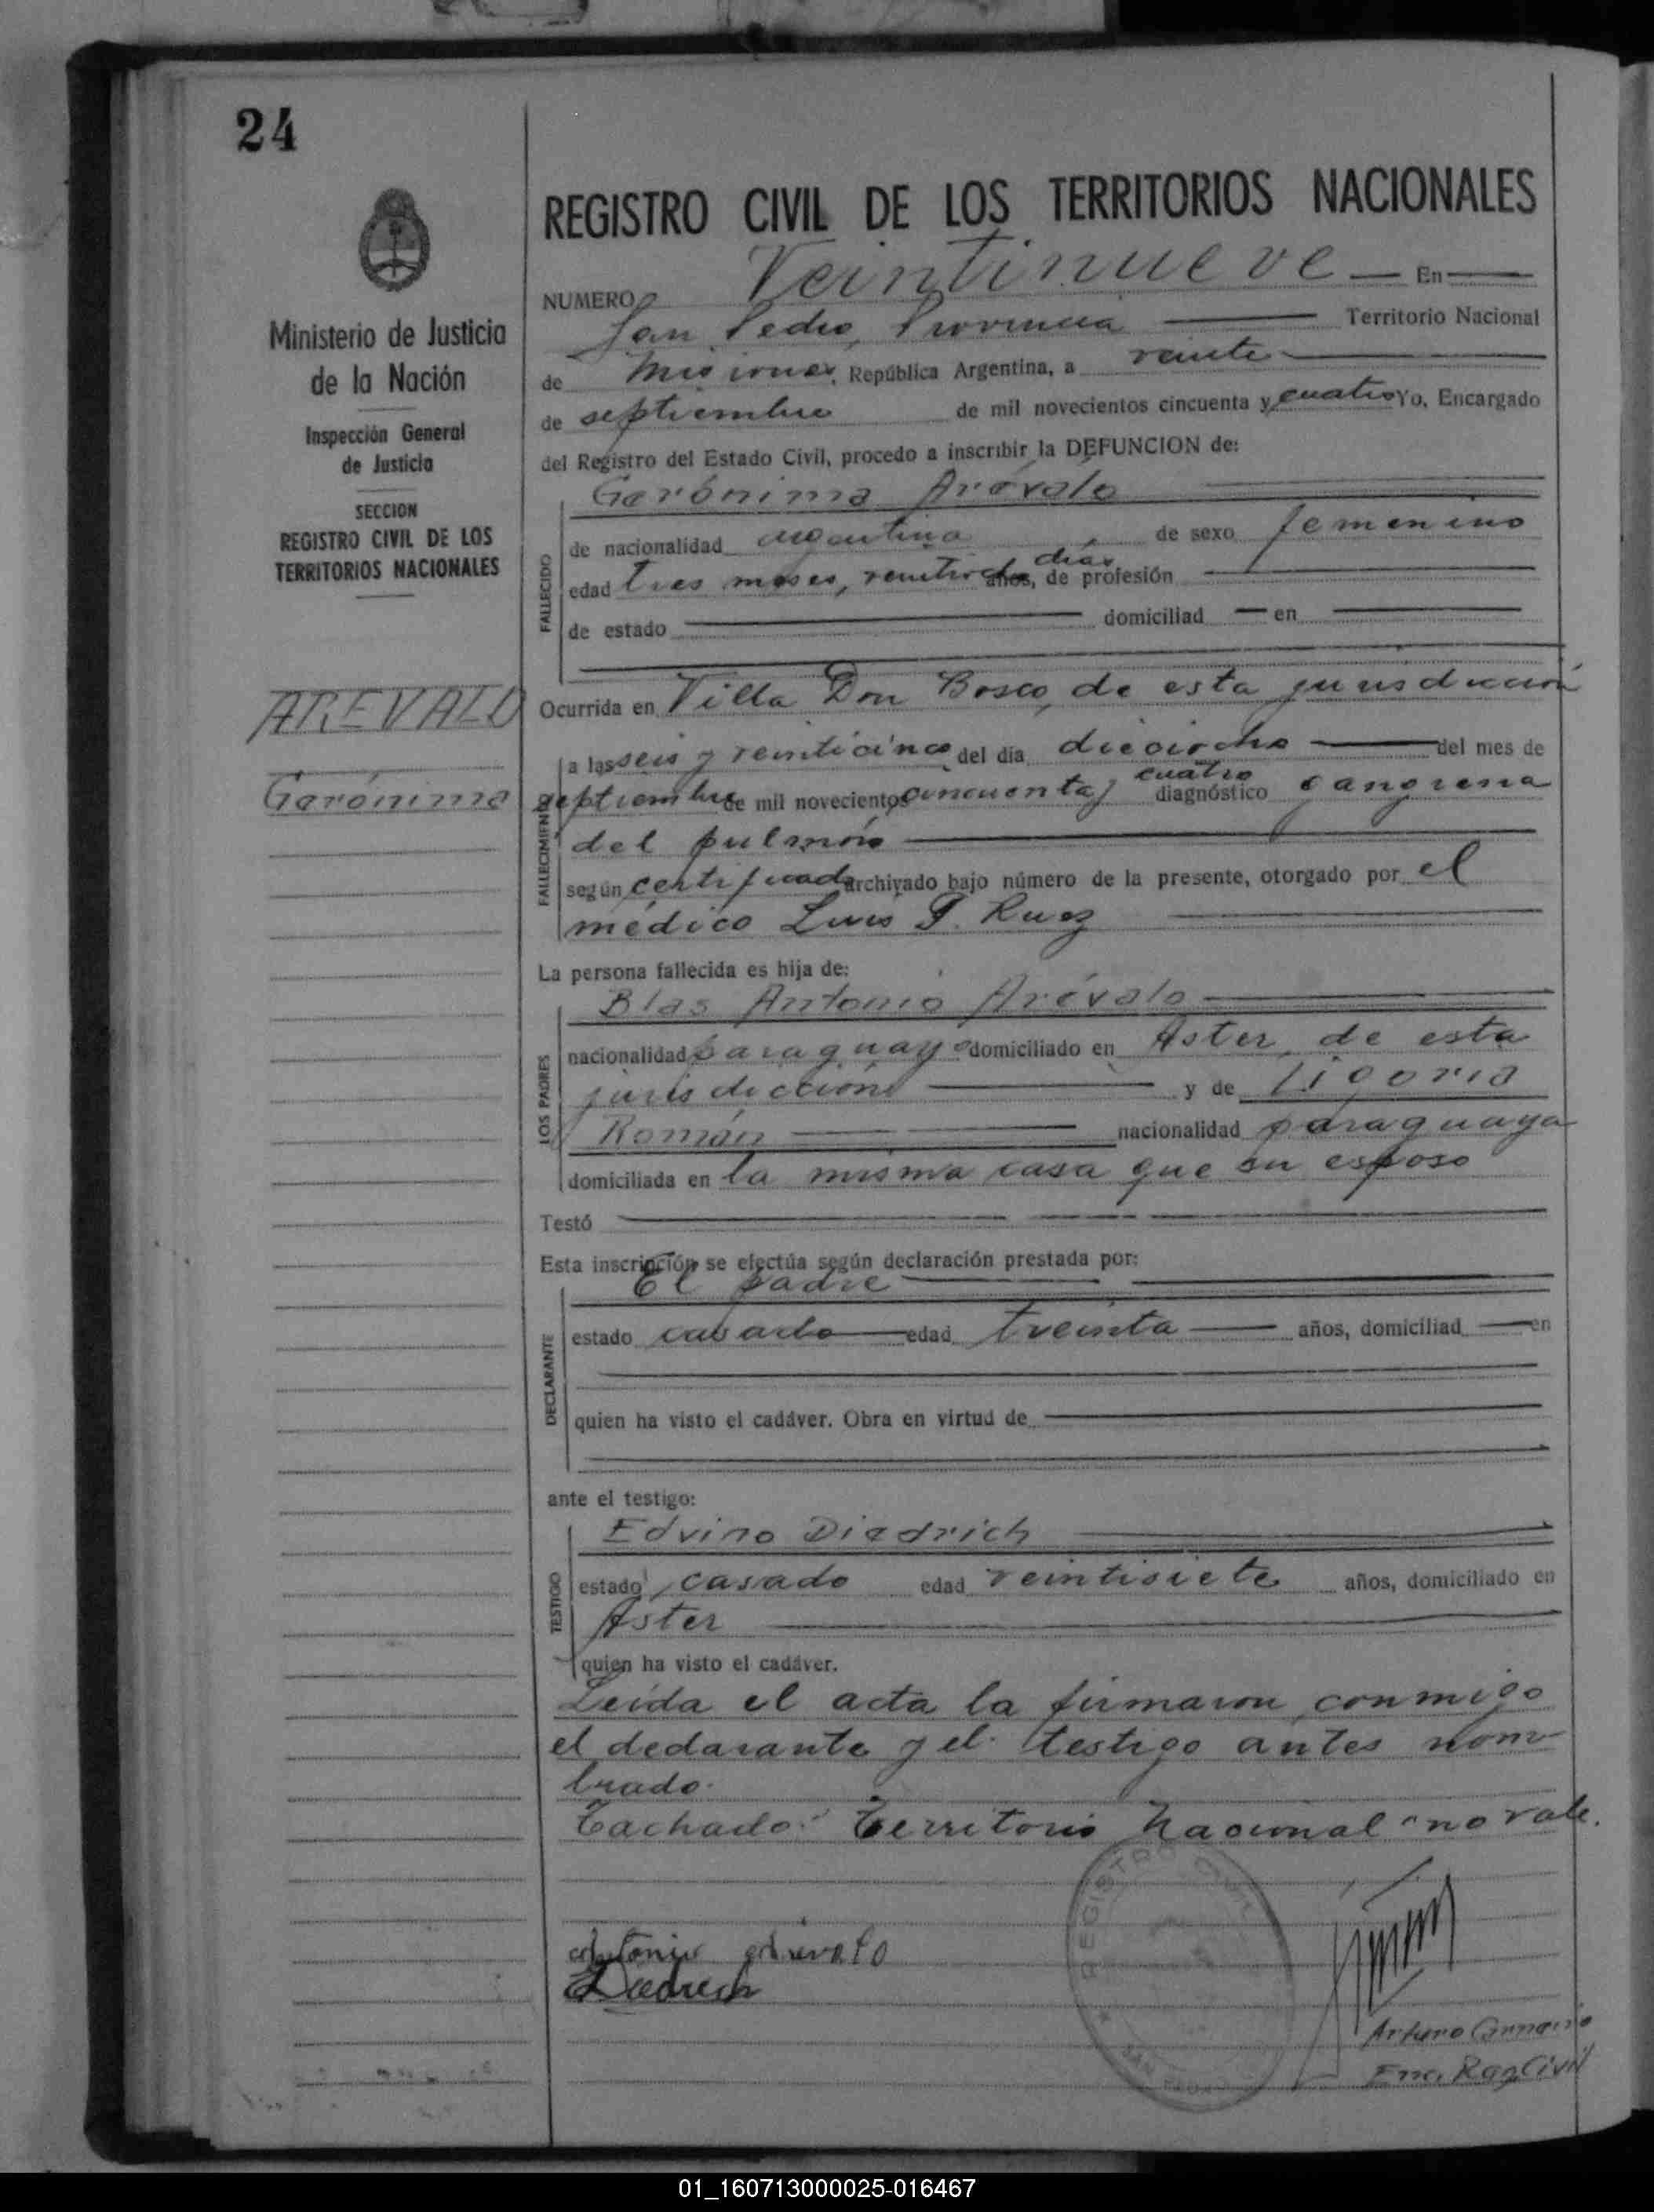 24
Ministerio de Justicia
de la Nación
Inspección General
de Justicia
SECCION
REGISTRO CIVIL DE LOS
TERRITORIOS NACIONALES
AREVALO
Gerónima
REGISTRO CIVIL DE LOS TERRITORIOS NACIONALES
NUMERO Veintinueve — En
San Pedro, Provincia Territorio Nacional
de Misiones, República Argentina, a veinte
de septiembre de mil novecientos cincuenta y cuatro Yo, Encargado
del Registro del Estado Civil, procedo a inscribir la DEFUNCION de:
Gerónima Arévalo
FALLECIDO
de nacionalidad argentina de sexo femenino
edad tres meses, días años, de profesión
de estado domiciliad — en
Ocurrida en Villa Don Bosco, de esta jurisdicción
FALLECIMIENTO
a las seis y veinticinco del día dieciocho del mes de
septiembre de mil novecientos cincuenta y cuatro diagnóstico gangrena
del pulmón
según certificado archivado bajo número de la presente, otorgado por el
médico Luis
La persona fallecida es hija de:
Blas Antonio Arévalo
LOS PADRES
nacionalidad paraguayo domiciliado en Aster, de esta
jurisdicción y de Ligoria
Román nacionalidad paraguaya
domiciliada en la misma casa que su esposo
Testó
Esta inscripción se efectúa según declaración prestada por:
El padre
DECLARANTE
estado casado edad treinta años, domiciliad — en
quien ha visto el cadáver. Obra en virtud de
ante el testigo:
Edvino Diedrich
TESTIGO
estado casado edad veintisiete años, domiciliado en
Aster
quien ha visto el cadáver.
Leída el acta la firmaron conmigo
el declarante y el testigo antes nom-
brado.
Tachado: "Territorio Nacional" no vale.
REGISTRO CIVIL
SAN PEDRO
Antonio Arévalo
Diedrich
Arturo
Enc. Reg Civil
01_160713000025-016467